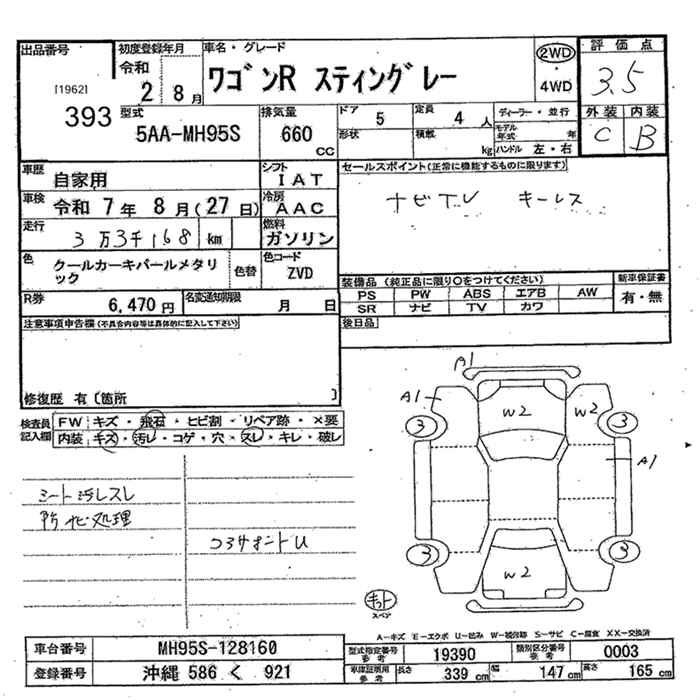 出品番号
[1962]
393
初度登録年月
令和
2 8月
車名・グレード
ワゴンR スティングレー
2WD
・
4WD
評価点
3.5
外装 内装
C B
型式
5AA-MH95S
排気量
660 cc
ドア 5
形状
定員 4 人
積載 kg
ディーラー・並行
モデル年式 年
ハンドル 左・右
車歴
自家用
シフト
IAT
車検
令和 7年 8月(27日)
冷房
AAC
走行
3万3千168 km
燃料
ガソリン
色
クールカーキパールメタリック
色替
色コード
ZVD
R券
6,470円
名変通知期限 月 日
セールスポイント(正常に機能するものに限ります)
ナビTV キーレス
装備品(純正品に限り○をつけてください)
PS PW ABS エアB AW
SR ナビ TV カワ
新車保証書
有・無
後日品
注意事項申告欄(不具合内容等は具体的に記入して下さい)
修復歴 有〔箇所 〕
検査員記入欄
FW キズ・飛石・ヒビ割・リペア跡・×要
内装 キズ・汚レ・コゲ・穴・スレ・キレ・破レ
シート汚レスレ
ナビ処理
コラサポートU
A1
A1
W2
W2
3
3
A1
3
3
W2
キット
スペア
A-キズ E-エクボ U-凹み W-補修跡 S-サビ C-腐食 XX-交換済
車台番号
MH95S-128160
登録番号
沖縄 586 く 921
型式指定番号
参考
19390
類別区分番号
参考
0003
車庫証明用
参考
長さ 339 cm
幅 147 cm
高さ 165 cm